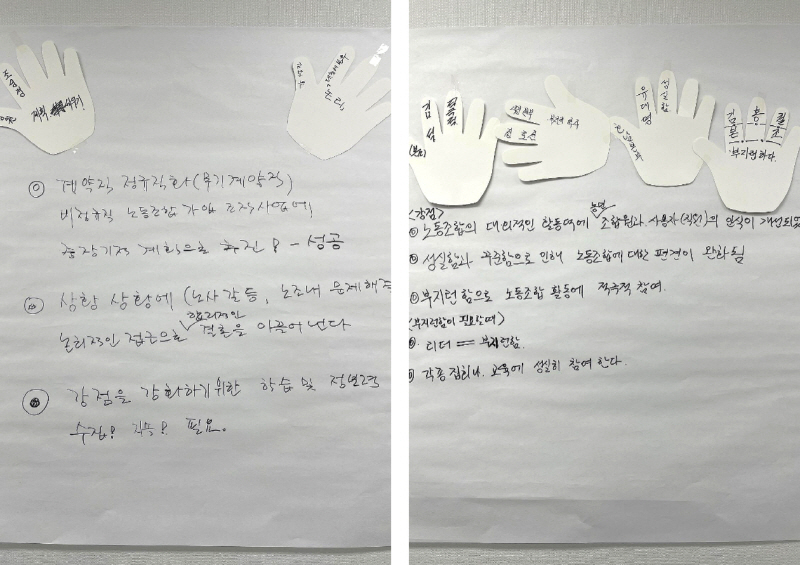 조성경
계약직 정규직화(무기계약직)
비정규직 노동조합 가입 조직사업에
중장기적 계획으로 추진 - 성공
상황 상황에 (노사갈등, 노조내 문제해결
논리적인 접근으로 합리적인 결론을 이끌어 낸다
강점을 강화하기위한 학습 및
수집! 필요.
김
석
유대영
성실함
김 흥
부지런하다
<강점>
노동조합의 대외적인 활동력에 조합원과 사용자(직원)의 인식이 개선되었
성실함과 꾸준함으로 인해 노동조합에 대한 편견이 완화됨
부지런함으로 노동조합 활동에 적극적 참여.
(부지런함이 필요할때)
리더 == 부지런함.
각종 집회나, 교육에 성실히 참여 한다.